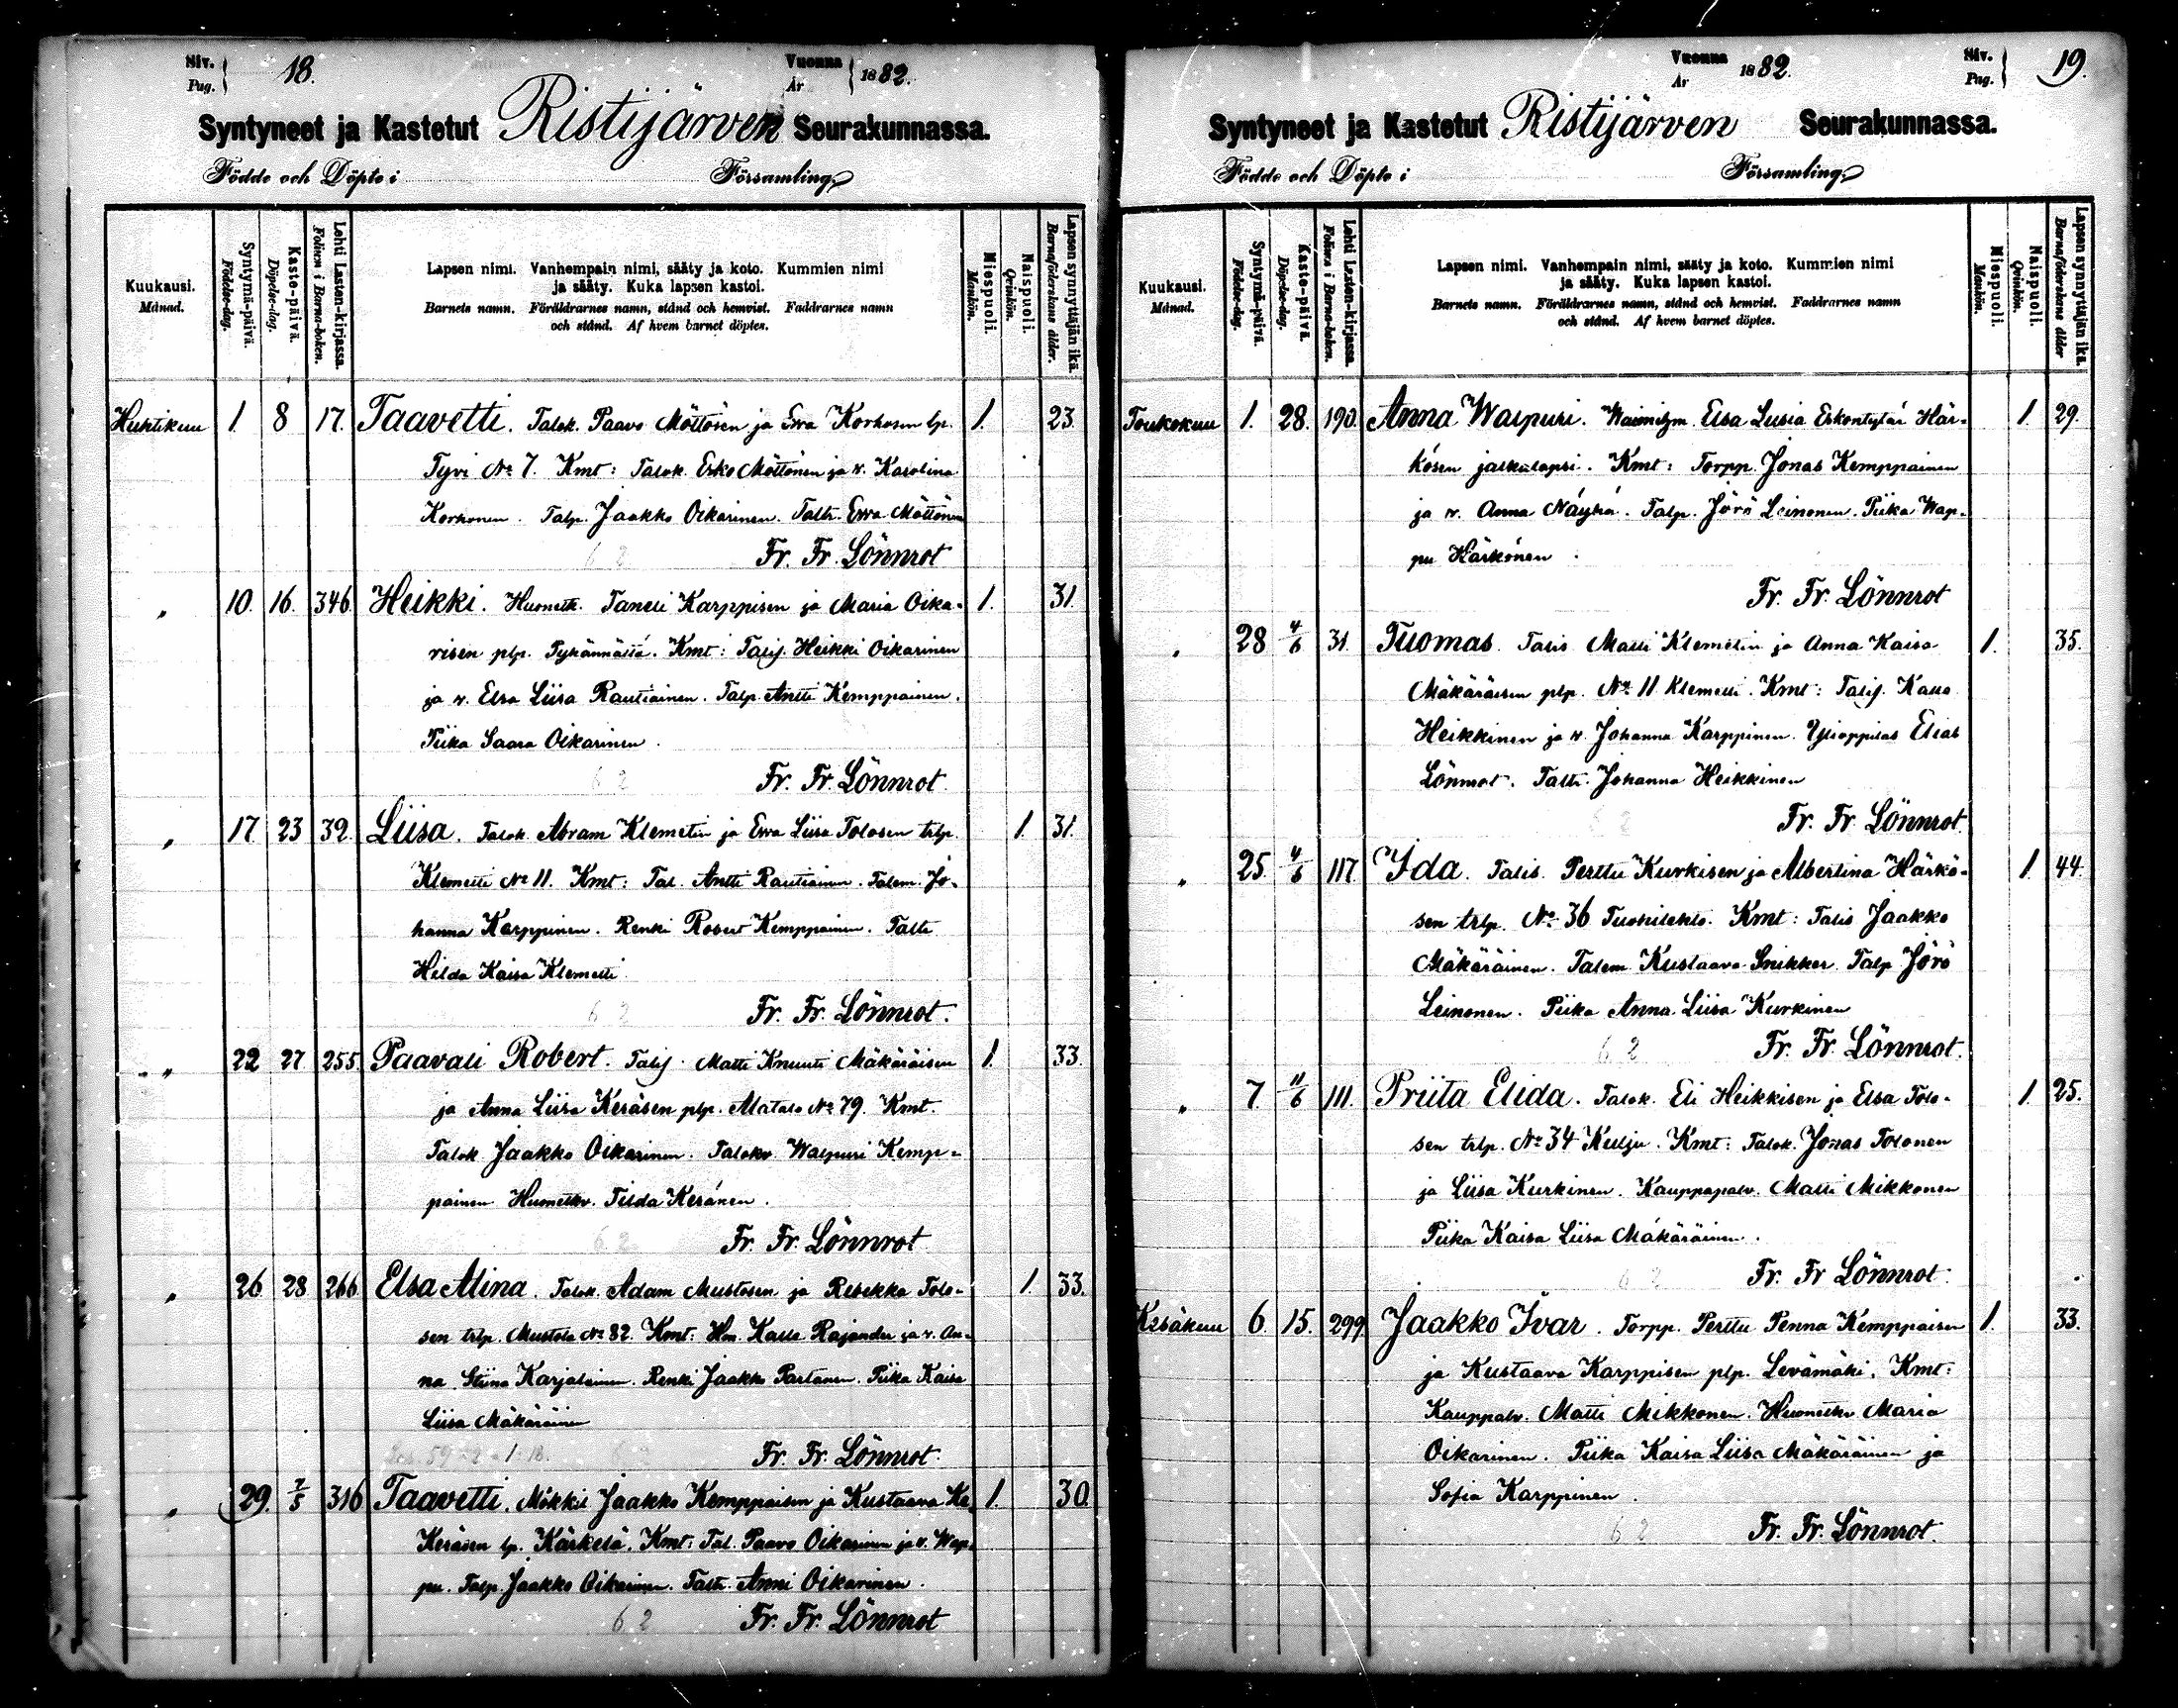 Siv. Pag. 18. Vuonna År 1882.
Syntyneet ja Kastetut Ristijärven Seurakunnassa.
Födde och Döpte i Församling.
Kuukausi. Månad.
Syntymä-päivä. Födelse-dag.
Kaste-päivä. Döpelse-dag.
Lehti Lasten-kirjassa. Folium i Barna-boken.
Lapsen nimi. Vanhempain nimi, sääty ja koto. Kummien nimi
ja sääty. Kuka lapsen kastoi.
Barnets namn. Föräldrarnes namn, stånd och hemvist. Faddrarnes namn
och stånd. Af hvem barnet döptes.
Miespuoli. Mankön.
Naispuoli. Qvinkön.
Lapsen synnyttäjän ikä. Barnaföderskans ålder.
Huhtikuu 1. 8 17. Taavetti. Talok. Paavo Möttösen ja Ewa Korhosen lp. 1. 23.
Tyvi No 7. Kmt: Talok. Erko Möttönen ja v. Karolina
Korhonen. Talp. Jaakko Oikarinen. Taltr. Ewa Möttönen
6 2 Fr. Fr. Lönnrot
" 10. 16. 346. Heikki. Huonetk. Taneli Karppisen ja Maria Oika- 1. 31.
risen plp. Pyhännässä. Kmt: Talis. Heikki Oikarinen
ja v. Elsa Liisa Rautiainen. Talp. Antti Kemppainen.
Piika Saara Oikarinen.
6 2 Fr. Fr. Lönnrot.
" 17. 23 32. Liisa. Talok. Abram Klemetin ja Ewa Liisa Tolosen trlp. 1. 31.
Klemetti No 11. Kmt: Tal. Antti Rautiainen. Talem. Jo-
hanna Karppinen. Renki Robert Kemppainen. Taltr.
Hilda Kaisa Klemetti
6 2 Fr. Fr. Lönnrot.
" 22 27 255. Paavali Robert. Talis. Matti Knuuti Mäkäräisen 1. 33.
ja Anna Liisa Keräsen plp. Matalo No 79. Kmt.
Talok Jaakko Oikarinen. Talokv. Walpuri Kemp-
painen Huonetkv. Tilda Keränen.
6 2 Fr. Fr. Lönnrot
" 26 28 266. Elsa Alina. Talok. Adam Mustosen ja Rebekka Tolo- 1. 33.
sen trlp. Mustola No 82. Kmt: Hm. Kalle Rajander ja v. An-
na Stiina Karjalainen. Renki Jaakko Partanen. Piika Kaisa
Liisa Mäkäräinen
Fr. Fr. Lönnrot.
" 29. 7/5 316 Taavetti. Mökkil Jaakko Kemppaisen ja Kustaava Ke- 1. 30.
Keräsen lp. Kärkelä. Kmt: Tal. Paavo Oikarinen ja v. Wap-
pu. Talp. Jaakko Oikarinen. Taltr. Anni Oikarinen.
6 2 Fr. Fr. Lönnrot
Vuonna År 1882. Siv. Pag. 19.
Syntyneet ja Kastetut Ristijärven Seurakunnassa.
Födde och Döpte i Församling.
Kuukausi. Månad.
Syntymä-päivä. Födelse-dag.
Kaste-päivä. Döpelse-dag.
Lehti Lasten-kirjassa. Folium i Barna-boken.
Lapsen nimi. Vanhempain nimi, sääty ja koto. Kummien nimi
ja sääty. Kuka lapsen kastoi.
Barnets namn. Föräldrarnes namn, stånd och hemvist. Faddrarnes namn
och stånd. Af hvem barnet döptes.
Miespuoli. Mankön.
Naispuoli. Qvinkön.
Lapsen synnyttäjän ikä. Barnaföderskans ålder
Toukokuu 1. 28. 190. Anna Walpuri. Elsa Lusia Erkontytär Här- 1. 29.
kösen jalkalapsi. Kmt: Torpp. Jonas Kemppainen
ja v. Anna Näyhä. Talp. Jörö Leinonen. Piika Wap-
pu Härkönen.
Fr. Fr. Lönnrot
" 28 4/6 31. Tuomas. Talis. Matti Klemetin ja Anna Kaisa 1. 35.
Mäkäräisen plp. No 11 Klemetti. Kmt: Talis. Kalle
Heikkinen ja v. Johanna Karppinen. Ylioppilas Elias
Lönnrot. Taltr. Johanna Heikkinen
6 2 Fr. Fr. Lönnrot.
" 25 4/6 117 Ida. Talis. Perttu Kurkisen ja Albertina Härkö- 1. 44.
sen trlp. No 36 Tuohilehto. Kmt: Talis Jaakko
Mäkäräinen. Talem. Kustaava Snikker. Talp Jörö
Leinonen. Piika Anna Liisa Kurkinen
6 2 Fr. Fr. Lönnrot.
" 7. 11/6 111. Priita Elida. Talok. Eli Heikkisen ja Elsa Tolo- 1. 25.
sen trlp. No 34 Kulju. Kmt: Talok. Jonas Tolonen
ja Liisa Kurkinen. Kauppapalv. Matti Mikkonen
Piika Kaisa Liisa Mäkäräinen.
6 2 Fr. Fr Lönnrot.
Kesäkuu 6. 15. 299. Jaakko Ivar. Torpp. Perttu Penna Kemppaisen 1. 33.
ja Kustaava Karppisen plp. Levämäki. Kmt:
Kauppalv. Matti Mikkonen. Huonetkv Maria
Oikarinen. Piika Kaisa Liisa Mäkäräinen ja
Sofia Karppinen.
6 2 Fr. Fr. Lönnrot.